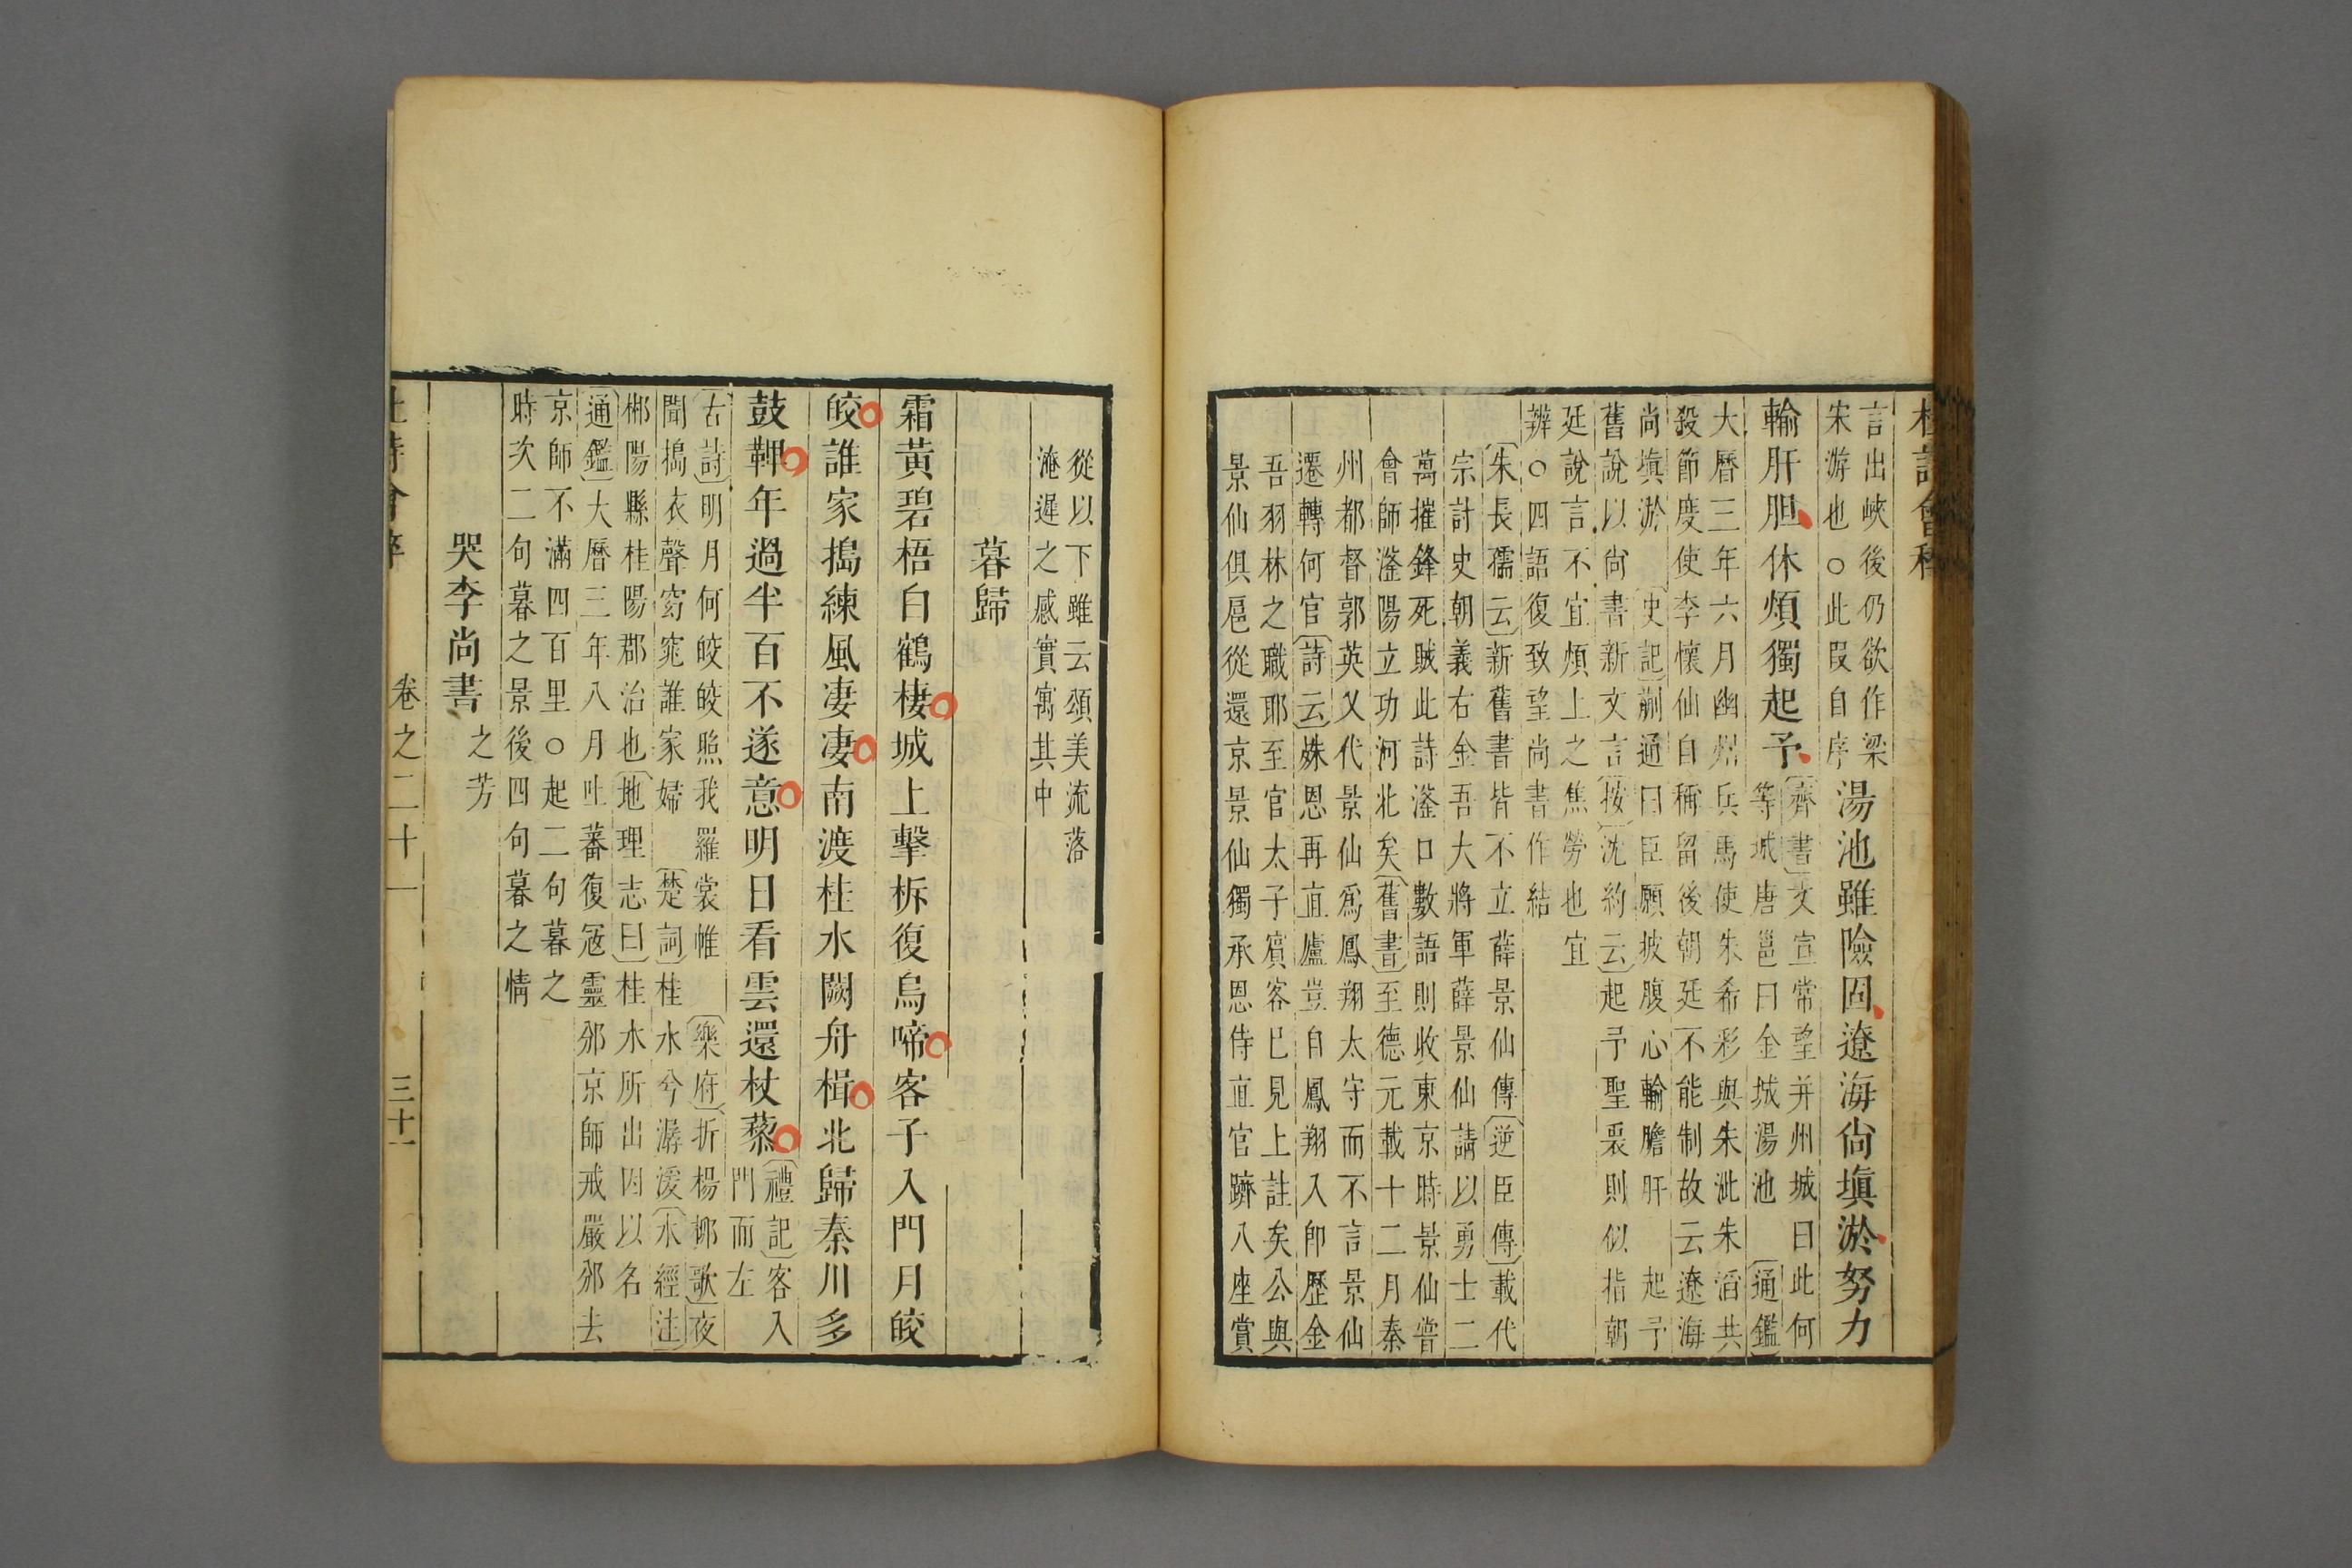 杜詩會稡
言出峽後仍欲作梁
宋游也○此叚自序
湯池雖險固遼海尙塡淤努力
輸肝胆休煩獨起予
〔齊書〕文宣常望并州城曰此何
等城唐邕曰金城湯池〔通鑑〕
大曆三年六月幽州兵馬使朱希彩與朱泚朱滔共
殺節度使李懷仙自稱留後朝廷不能制故云遼海
尚塡淤〔史記〕蒯通曰臣願披腹心輸膽肝 起予
舊說以尙書新文言〔按〕沈約云起予聖裂則似指朝
廷說言不宜煩上之焦勞也宜
辨○四語復致望尚書作結
〔朱長孺云〕新舊書皆不立薛景仙傳〔逆臣傳〕載代
宗討史朝義右金吾大將軍薛景仙請以勇士二
萬摧鋒死賊此詩滏口數語則收東京時景仙普
會師滏陽立功河北矣〔舊書〕至德元載十二月秦
州都督郭英乂代景仙爲鳳翔太守而不言景仙
遷轉何官〔詩云〕姝恩再直廬豈自鳳翔入卽歷金
吾羽林之職耶至官太子賔客已見上註矣公與
景仙俱扈從還京景仙獨承恩侍直官躋八座賞
從以下雖云頌美流落
淹遲之感實寓其中
暮歸
霜黃碧梧白鶴棲城上擊柝復烏啼客子入門月皎
皎誰家搗練風凄凄南渡桂水闕舟楫北歸秦川多
鼓鞞年過半百不遂意明日看雲還杖藜
〔禮記〕客入
門而左
〔古詩〕明月何皎皎照我羅裳帷 〔樂府〕折楊桺歌〔夜
聞搗衣聲窈窕誰家婦 〔楚詞〕桂水兮潺湲〔水經注〕
郴陽縣桂陽郡治也〔地理志曰〕桂水所出因以名
〔通鑑〕大曆三年八月吐蕃復冦靈邠京師戒嚴邠去
京師不滿四百里○起二句暮之
時次二句暮之景後四句暮之情
哭李尚書之芳
杜詩會稡 卷之二十一 三十一